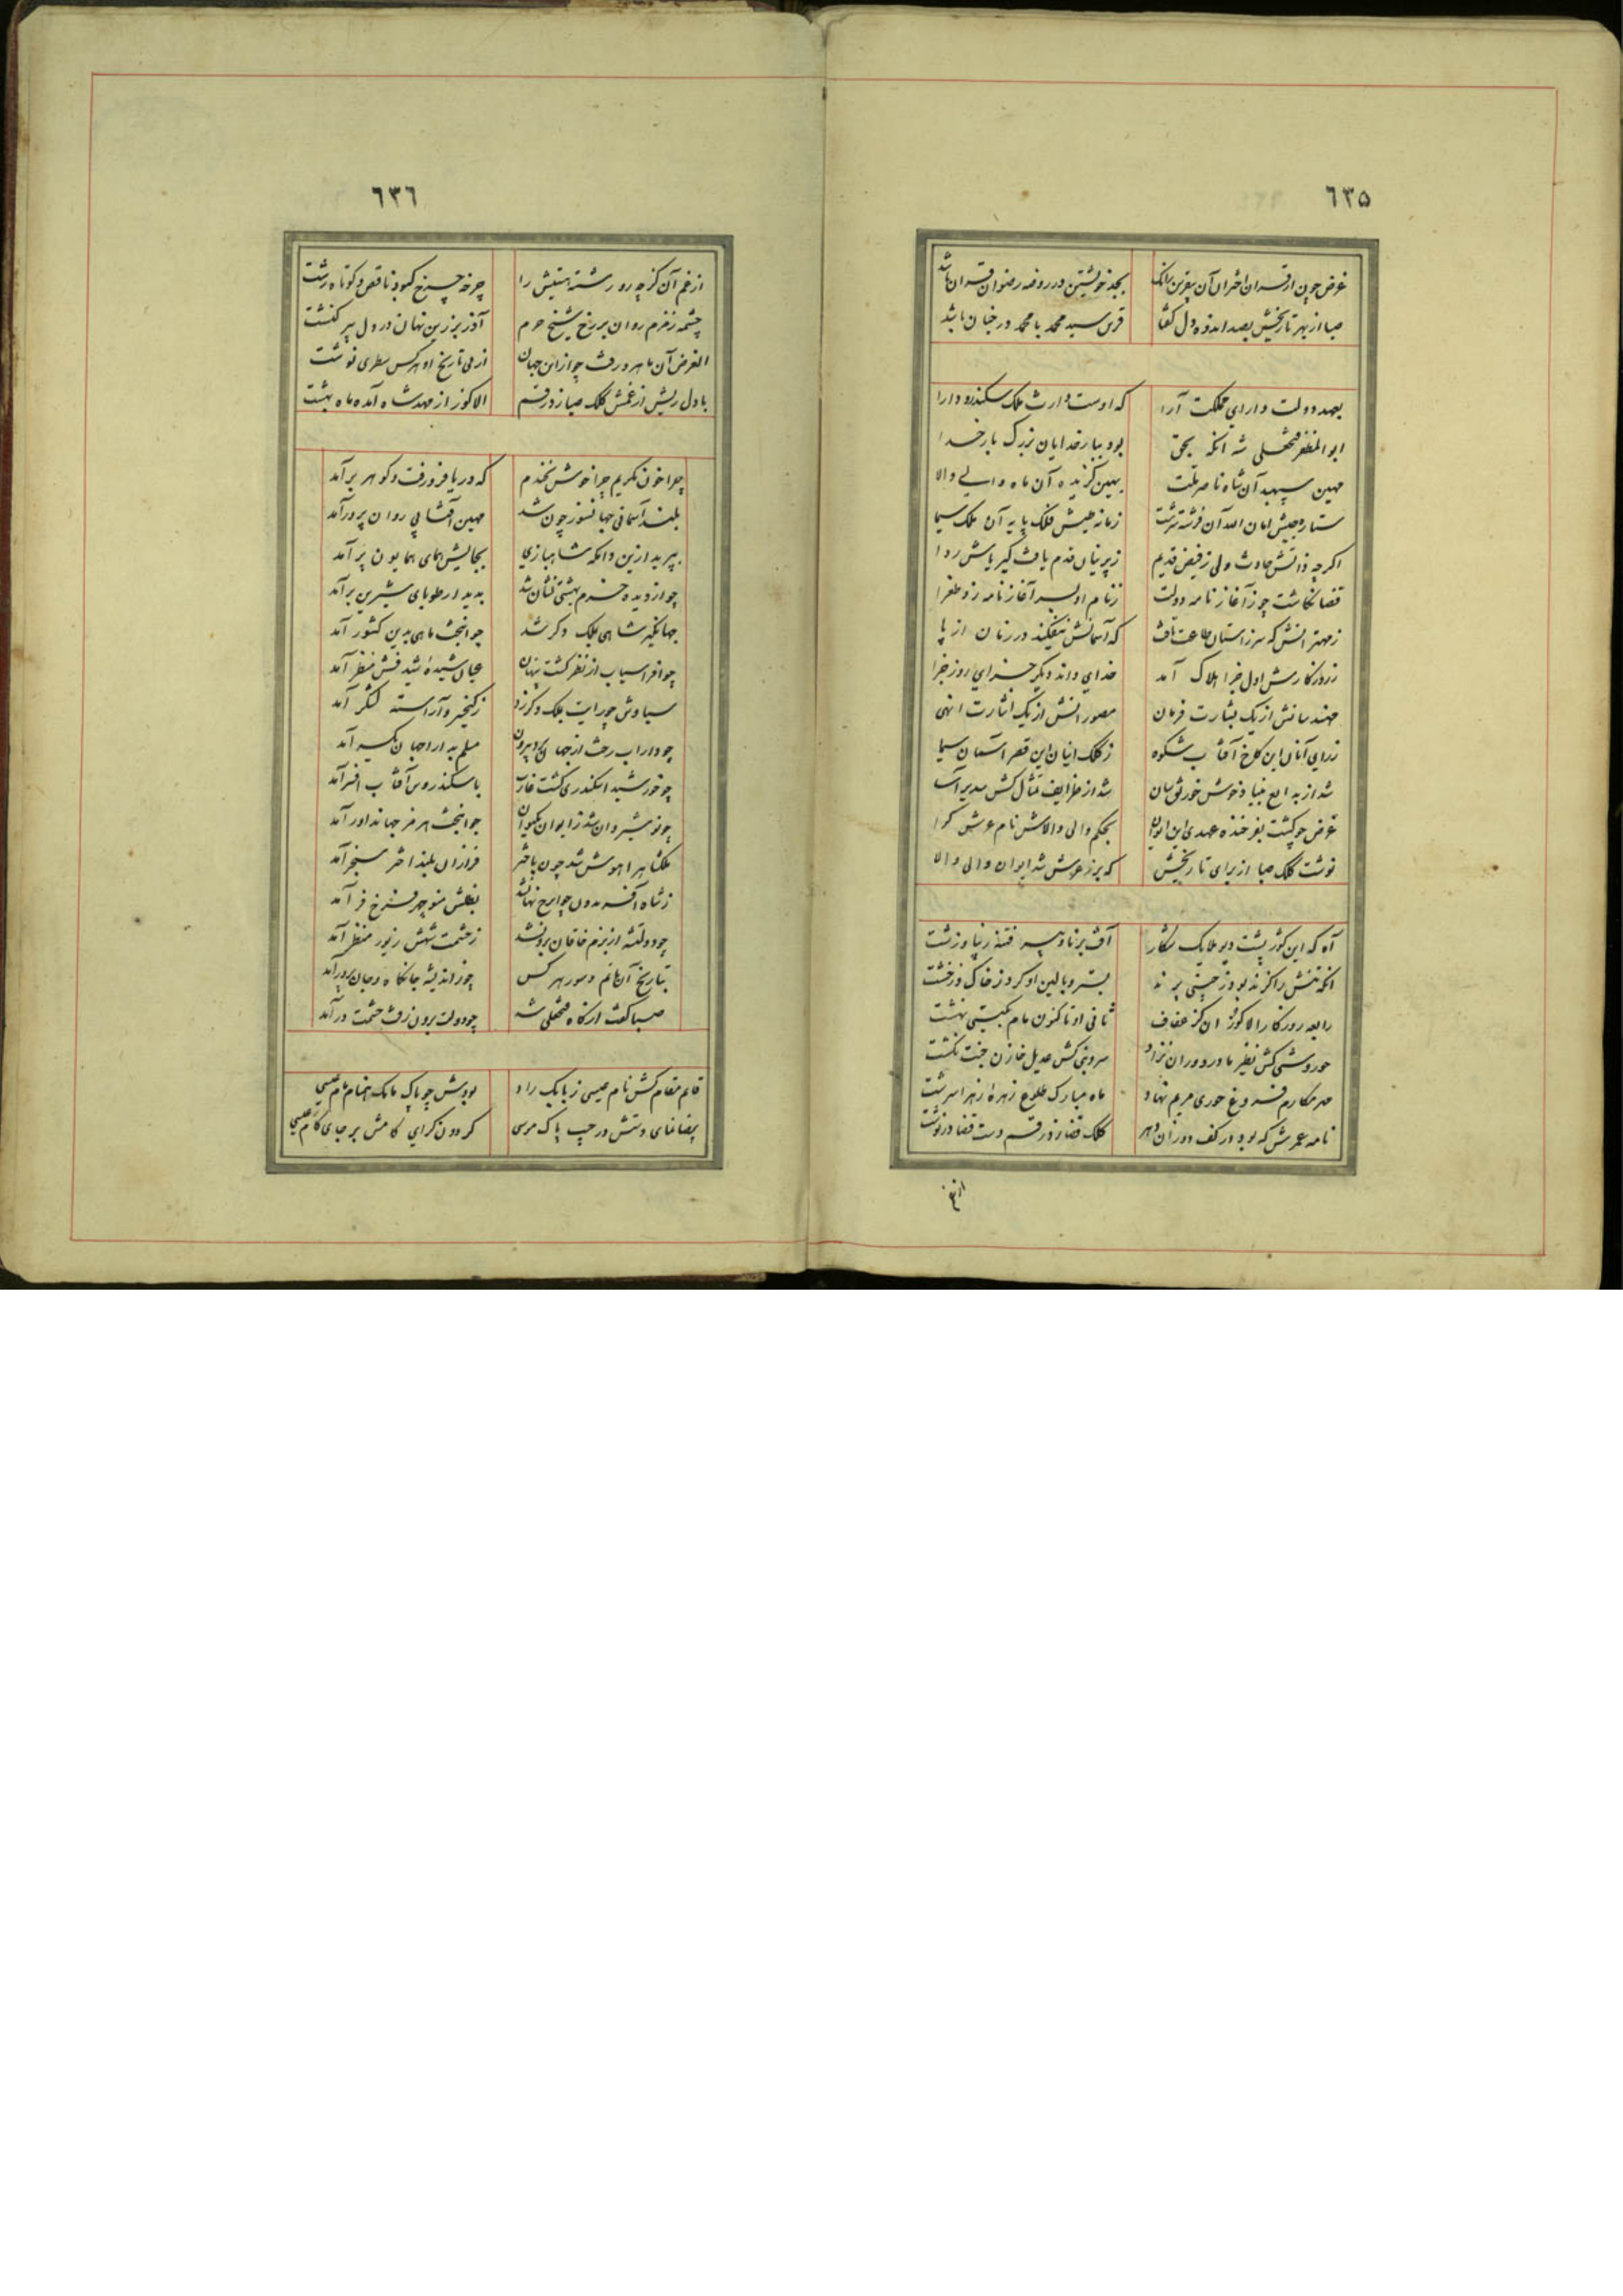 ٦٣۵
غرض چون از قران اختران آن بیقرین رانک بجد خویشتن در روضه رضوان قران باشد
صبا از بهر تاریخش بصد اندوه دل گفتا قرین سید محمد با محمد در جنان باشد
بعهد دولت دارای مملکت آرا که اوست وارث ملک سکندر و دارا
ابوالمظفر فتحعلی شه آنکه بحق بود ببار خدایان بزرگ بار خدا
مهین سپهبد آن شاه ناصر ملت بهین گزیده آن ماه والی والا
ستاره جیش امان الله آن فرشته سرشت زمانه طیش فلک پایه آن ملک سیما
اگر چه ذاتش حادث ولی ز فیض قدیم ز پرنیان قدم یافت کبریاش ردا
قضا نگاشت چو ز آغاز نامه دولت ز نام او بسر آغاز نامه زد طغرا
ز مهتر انش که سر ز آستان طاعت تافت که آسمانش نیفکند در زمان از پا
ز روزگارش اول جزا هلاک آمد خدای داند دیگر جزای روز جزا
مهندسانش از یک بشارت فرمان مصورانش از یک اشارت انهی
ز رای آنان این کاخ آفتاب شکوه ز کلک اینان این قصر آسمان سیما
شد از بدایع بنیاد خوش خورنق سان شد از طرایف تمثال کش سدیر آسا
غرض چو گشت بفرخنده عهدی این ایوان بحکم والی والاش نام عرش گرا
نوشت کلک صبا از برای تاریخش که برز عرش شد ایوان والی والا
آه که این کوژپشت دیو ملایک شکار آفت برنا و پیر فتنه زیبا و زشت
آنکه تنش را گزند بود ز چینی پرند بستر و بالین او کرد ز خاک و ز خشت
رابعه روزگار الاکوز آن کز عفاف ثانی او تاکنون مام بگیتی نهشت
حوروشی کش نظیر مادر دوران نزاد سروبنی کش عدیل خازن جنت نکشت
مهر مکارم فروغ حوری مریم نهاد ماه مبارک طلوع زهره زهرا سرشت
نامه عمرش که بود در کف دوران دهر کلک قضا زد رقم دست قضا درنوشت
از غم
٦٣٦
از غم آن کز چه رو رشته هستیش را چرخه چرخ کبود ناقص و کوتاه رشت
چشمه زمزم روان بر رخ شیخ حرم آذر برزین نهان در دل پیر کنشت
الغرض آن ماهرو رفت چو از این جهان از پی تاریخ او هر کس سطری نوشت
با دل ریش از غمش کلک صبا زد رقم الاکوز از مهد شاه آمده ماه بهشت
چرا خون نگریم چرا خوش نخندم که دریا فرو رفت و گوهر برآمد
بلند آسمانی جهانسوز چون شد مهین آفتابی روان پرور آمد
بپرید ازین دامکه شاهبازی بجایش همای همایون پر آمد
چو از دیده خرم بهشتی نشان شد پدیدار طوبای شیرین بر آمد
جهانگیر شاهی بملک دگر شد جوانبخت ماهی بدین کشور آمد
چو افراسیاب از نظر گشت پنهان عیان شیده شیدفش منظر آمد
سیاوش چو رایت بملک دگر زد ز کیخسرو آراسته لشکر آمد
چو داراب رخت از جهان برد بیرون مسلم بدارا جهان یکسر آمد
چو خورشید اسکندری گشت غارب باسکندروس آفتاب افسر آمد
چو نوشیروان شد ز ایوان بکیوان جوانبخت هرمز جهانداور آمد
ملکشاه را هوش شد چون باختر فروزان بلند اختر سنجر آمد
ز شاه آفریدون چو ایرج نهان شد بعلش منوچهر فرخ فر آمد
چو دولتشه از بزم خاقان برون شد ز حشمت شهش زیور منظر آمد
بتاریخ آن ماتم و سور هر کس چو ز اندیشه جانکاه و جان پرور آمد
صبا گفت از کاه فتحعلی شه چو دولت برون رفت حشمت درآمد
قائم مقام کش نام عیسی ز بابک راد بودش چو پاک مامک همنام مام عیسی
بیضا نمای دستش در جیب پاک موسی گردون گرای گامش بر جای گام عیسی